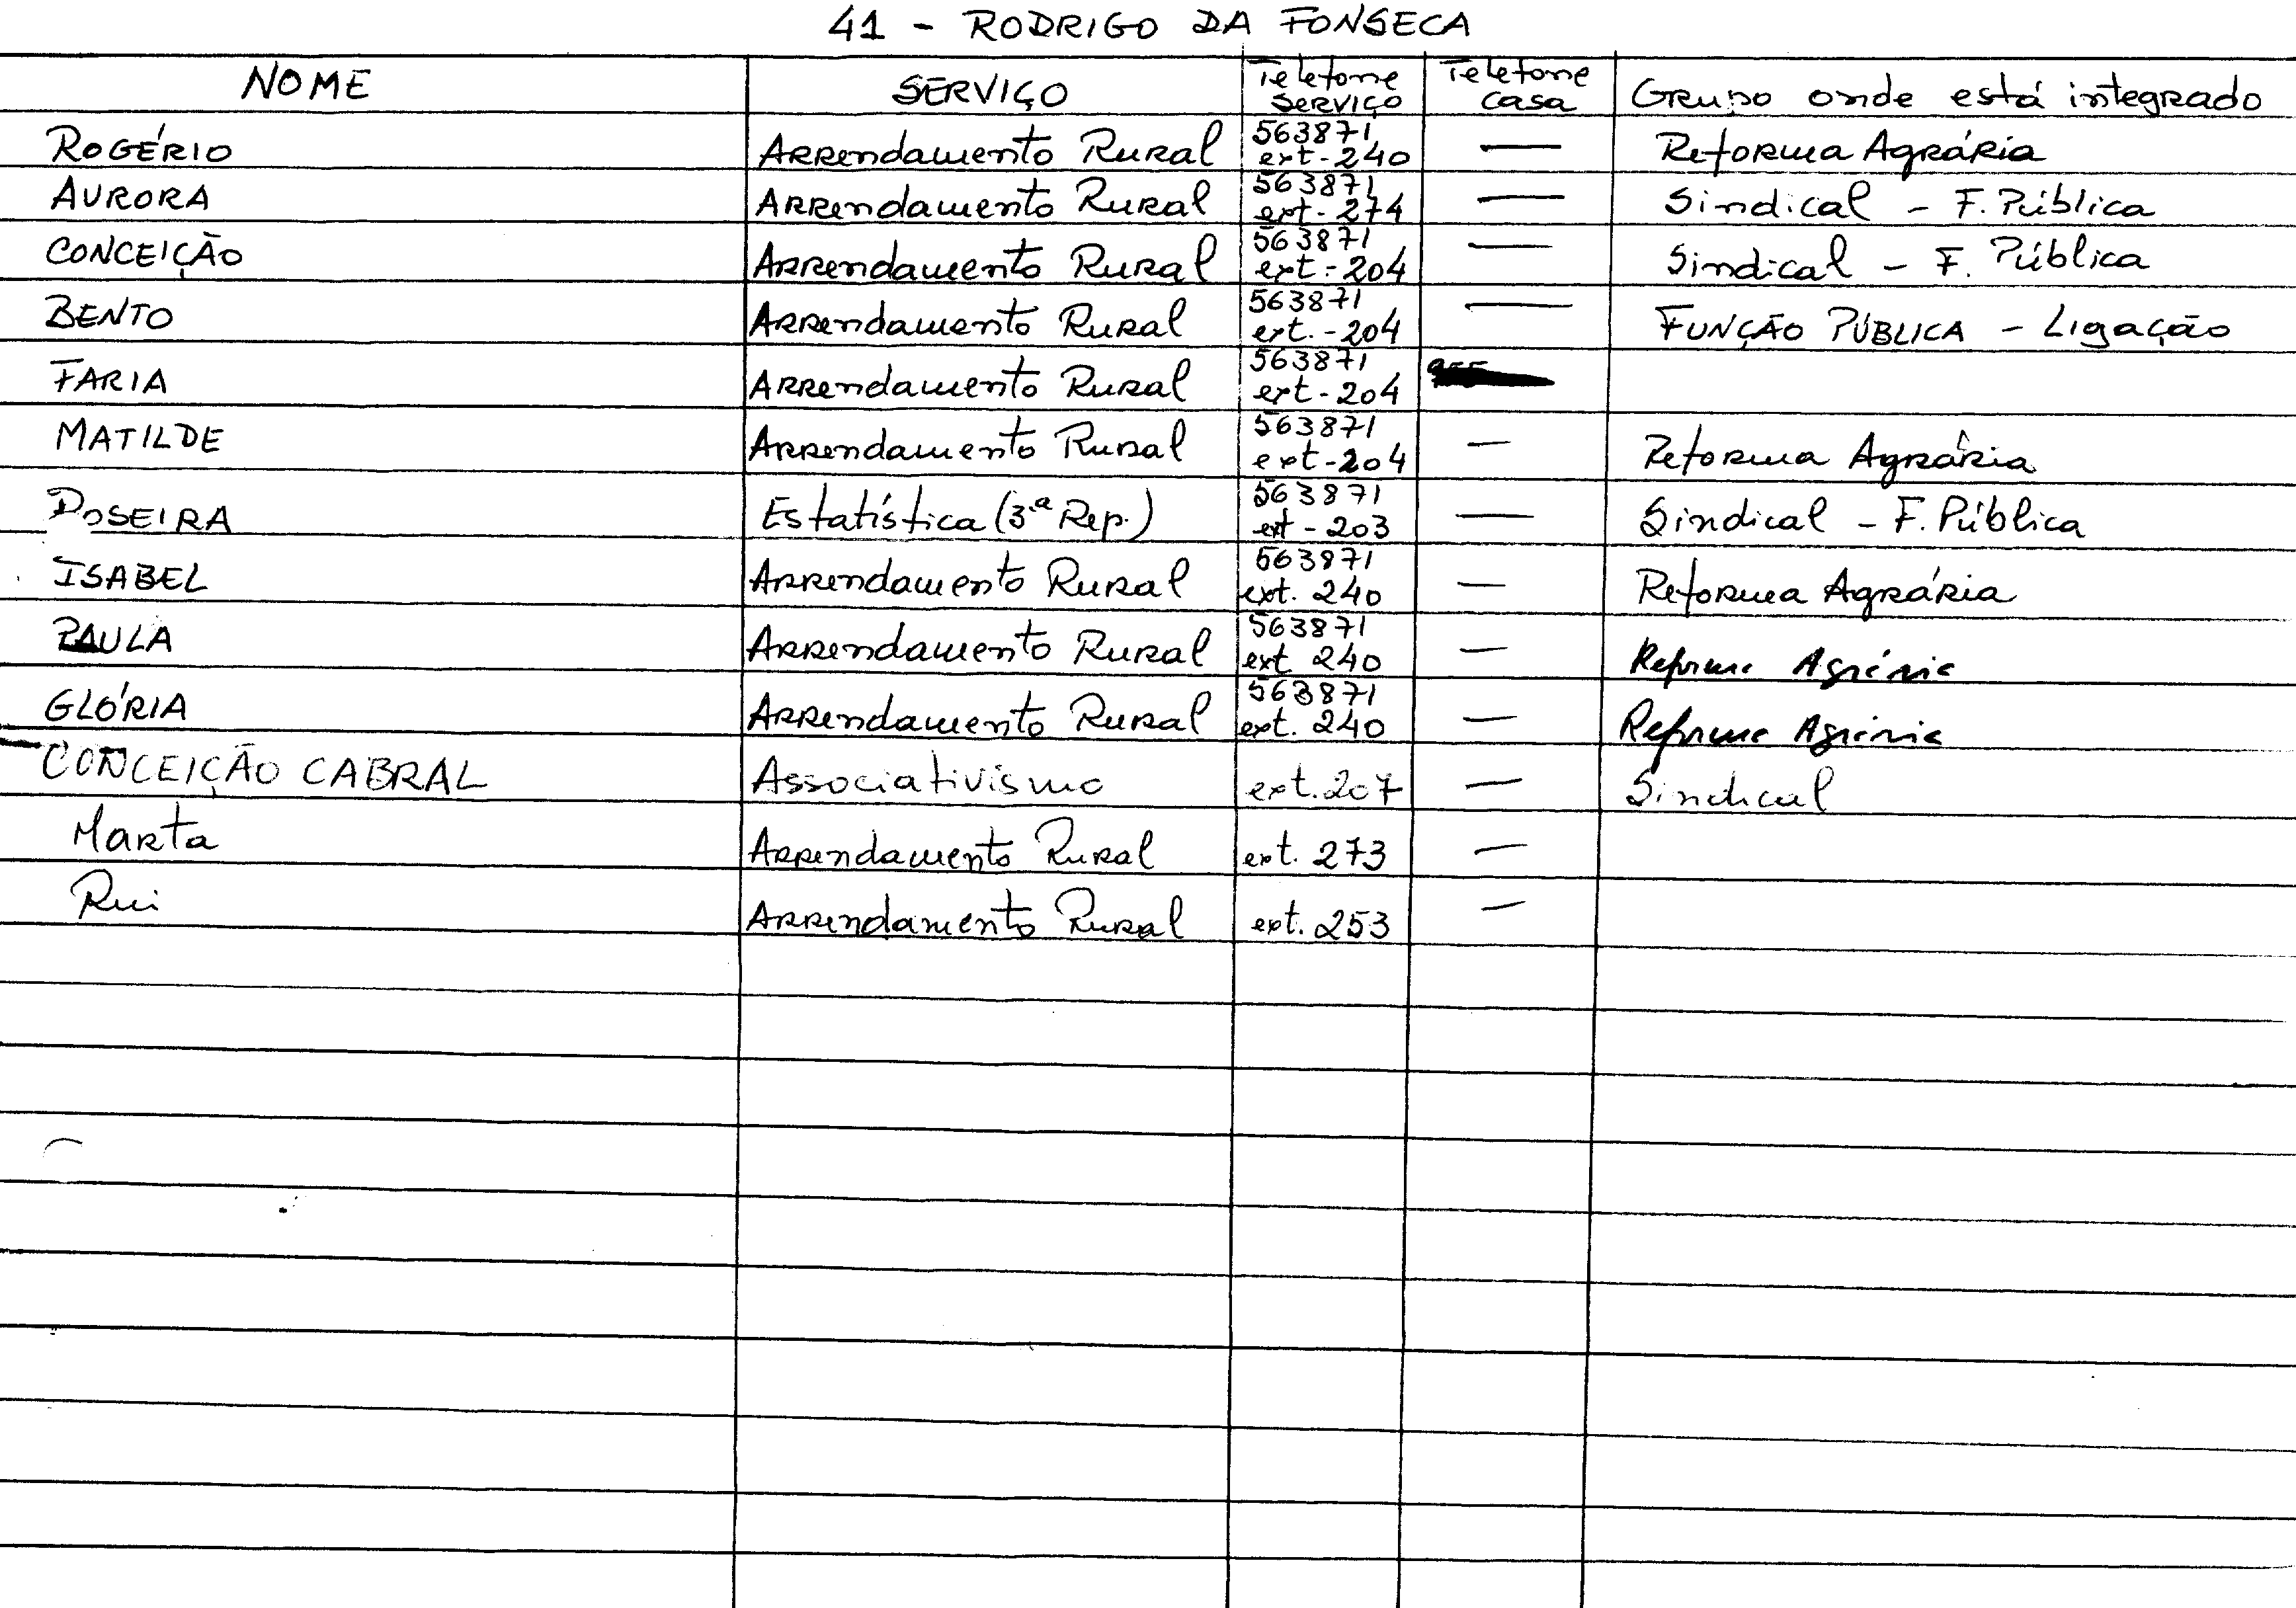 41 - RODRIGO DA FONSECA
NOME SERVIÇO Telefone Serviço Telefone casa Grupo onde está integrado
ROGÉRIO Arrendamento Rural 563871 ext-240 — Reforma Agrária
AURORA Arrendamento Rural 563871 ext-274 — Sindical - F. Pública
CONCEIÇÃO Arrendamento Rural 563871 ext.-204 — Sindical - F. Pública
BENTO Arrendamento Rural 563871 ext.-204 — FUNÇÃO PÚBLICA - Ligação
FARIA Arrendamento Rural 563871 ext-204
MATILDE Arrendamento Rural 563871 ext-204 — Reforma Agrária
ROSEIRA Estatística (3.ª Rep.) 563871 ext-203 — Sindical - F. Pública
ISABEL Arrendamento Rural 563871 ext. 240 — Reforma Agrária
PAULA Arrendamento Rural 563871 ext 240 — Reforma Agrária
GLÓRIA Arrendamento Rural 563871 ext. 240 — Reforma Agrária
CONCEIÇÃO CABRAL Associativismo ext. 207 — Sindical
Marta Arrendamento Rural ext. 273 —
Rui Arrendamento Rural ext. 253 —